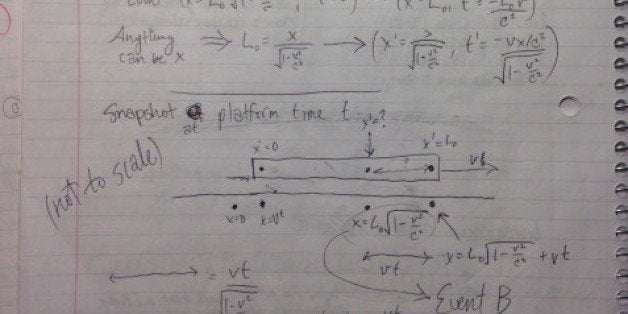 (x'=L₀, t'=-L₀v/c²)
Anything can be x ⟹ L₀ = x/√(1-v²/c²) ⟶ (x' = x/√(1-v²/c²), t' = -vx/c²/√(1-v²/c²))
Snapshot at platform time t
x'=?
x'=0 x'=L₀
(not to scale)
?
x=0 x=vt x=L₀√(1-v²/c²)
vt x=L₀√(1-v²/c²) + vt
⟷ = vt/√(1-v²/c²)
Event B